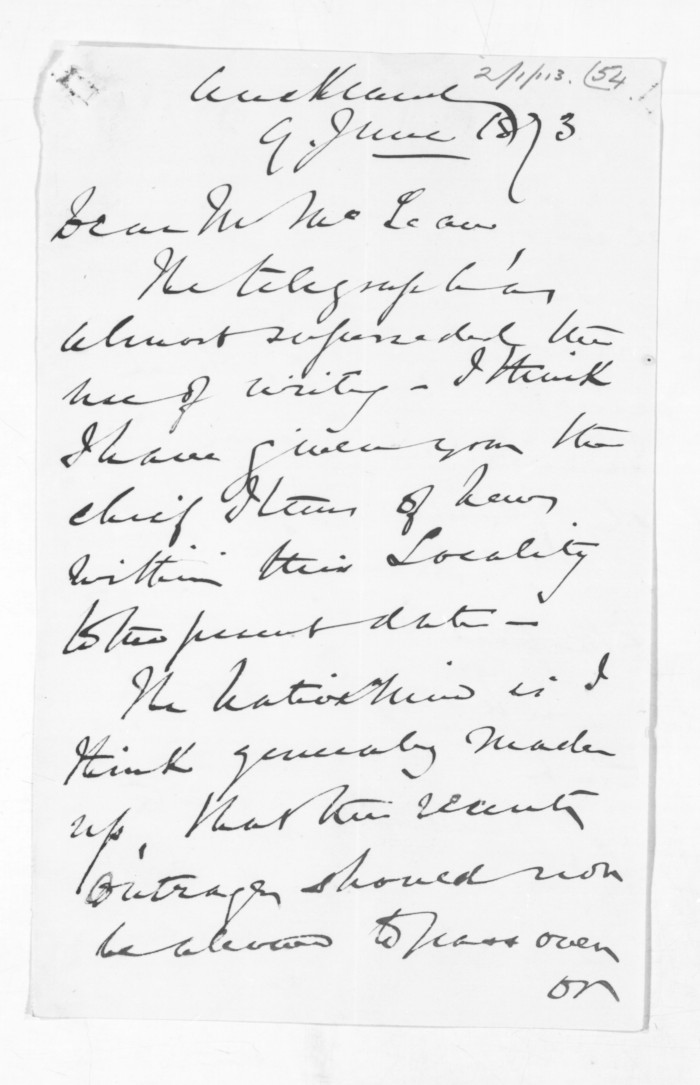 2/1/113. (54.
Auckland
9. June 1873
Dear Mr McLean
The telegraph has
almost superseded the
use of writing - I think
I have given you the
chief Items of news
within this Locality
to the present date -
The Native Mind is I
think generally made
up, that the recent
Outrages should not
be allowed to pass over
or